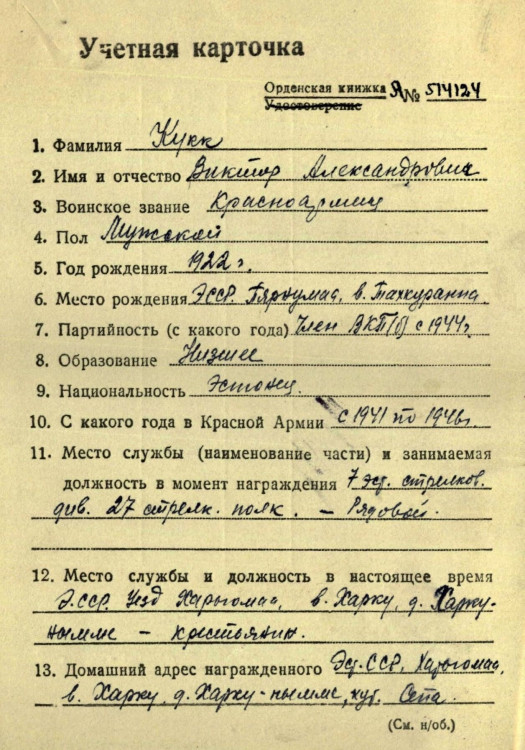 Учетная карточка
Орденская книжка Я№ 514124
Удостоверение
1. Фамилия Кукк
2. Имя и отчество Виктор Александрович
3. Воинское звание Красноармеец
4. Пол Мужской
5. Год рождения 1922 г.
6. Место рождения ЭССР. Пярнумаа, в. Тахкуранна
7. Партийность (с какого года) Член ВКП(б) с 1944 г.
8. Образование Низшее
9. Национальность Эстонец.
10. С какого года в Красной Армии с 1941 по 1946 г.
11. Место службы (наименование части) и занимаемая
должность в момент награждения 7 эст. стрелков.
див. 27 стрелк. полк. – Рядовой.
12. Место службы и должность в настоящее время
Э.ССР. Уезд Харьюмаа, в. Харку, д. Харку-
нымме – крестьянин.
13. Домашний адрес награжденного Эст.ССР, Харьюмаа,
в. Харку, д. Харку-нымме, хут. Сепа.
(См. н/об.)